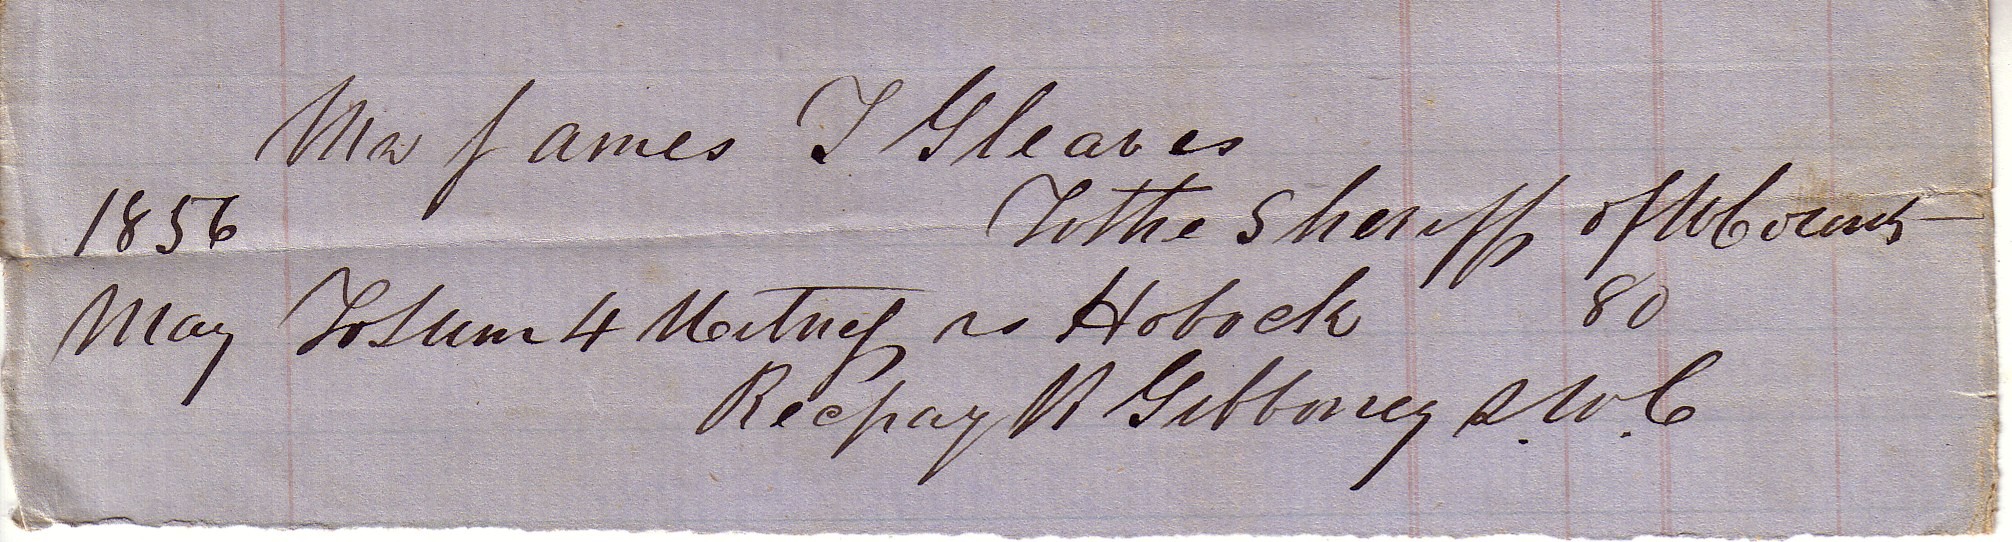 Mr James T Gleaves
1856 To the Sheriff of W County
May To Sum 4 Witnes vs Hoback 80
Rec pay R Gibboney S.W.C